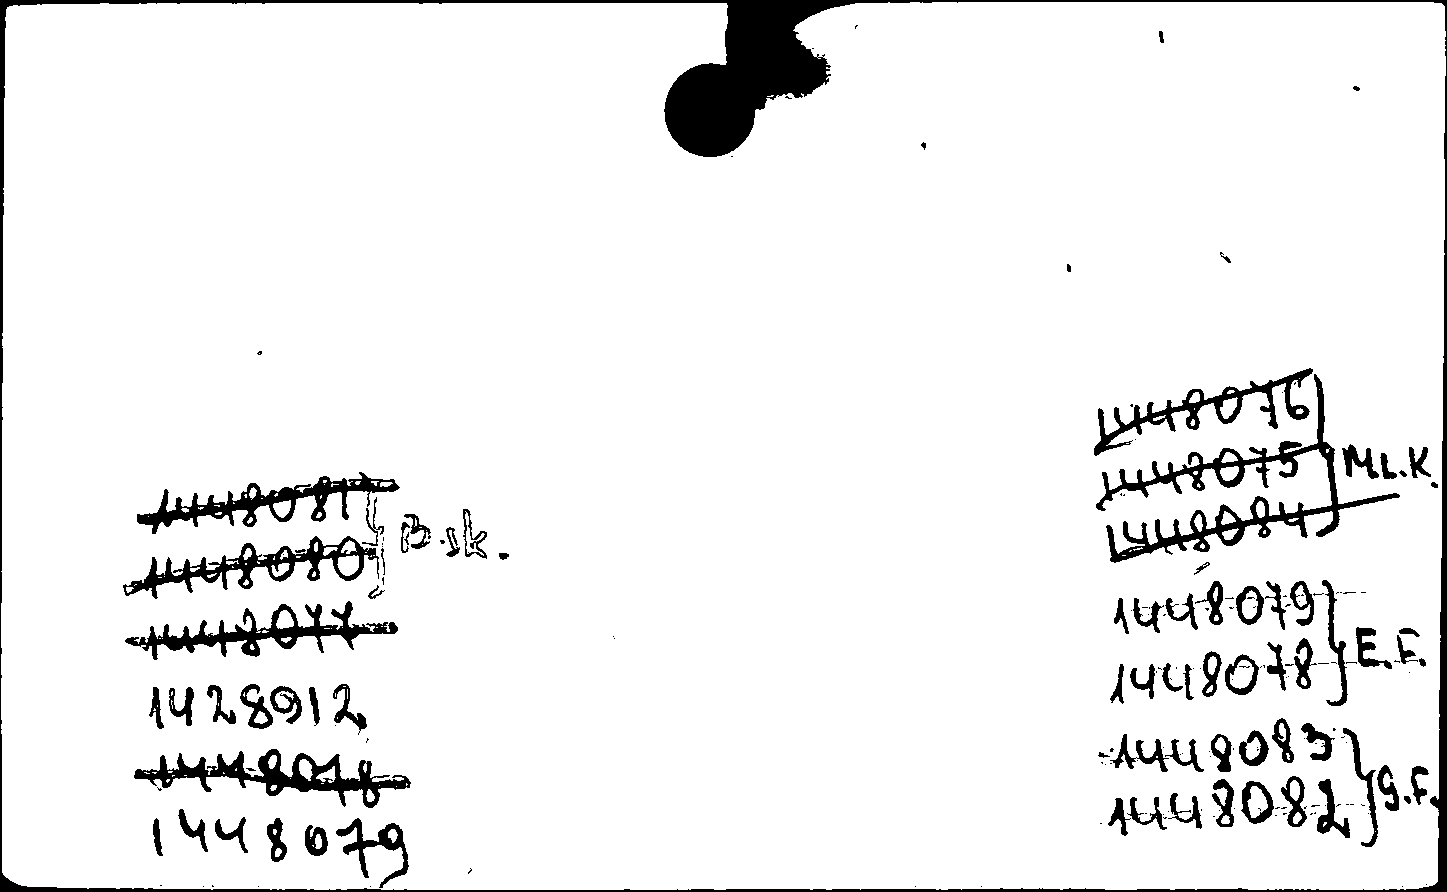 1448081
1448080
B.sk.
1448077
1428912
1448078
1448079
1448076
1448075
M.L.K.
1448084
1448079
1448078
E.F.
1448083
1448082
G.F.